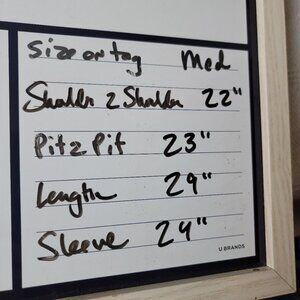 Size on tag Med
Sholder 2 Sholder 22"
Pit 2 Pit 23"
Length 29"
Sleeve 24"
U BRANDS